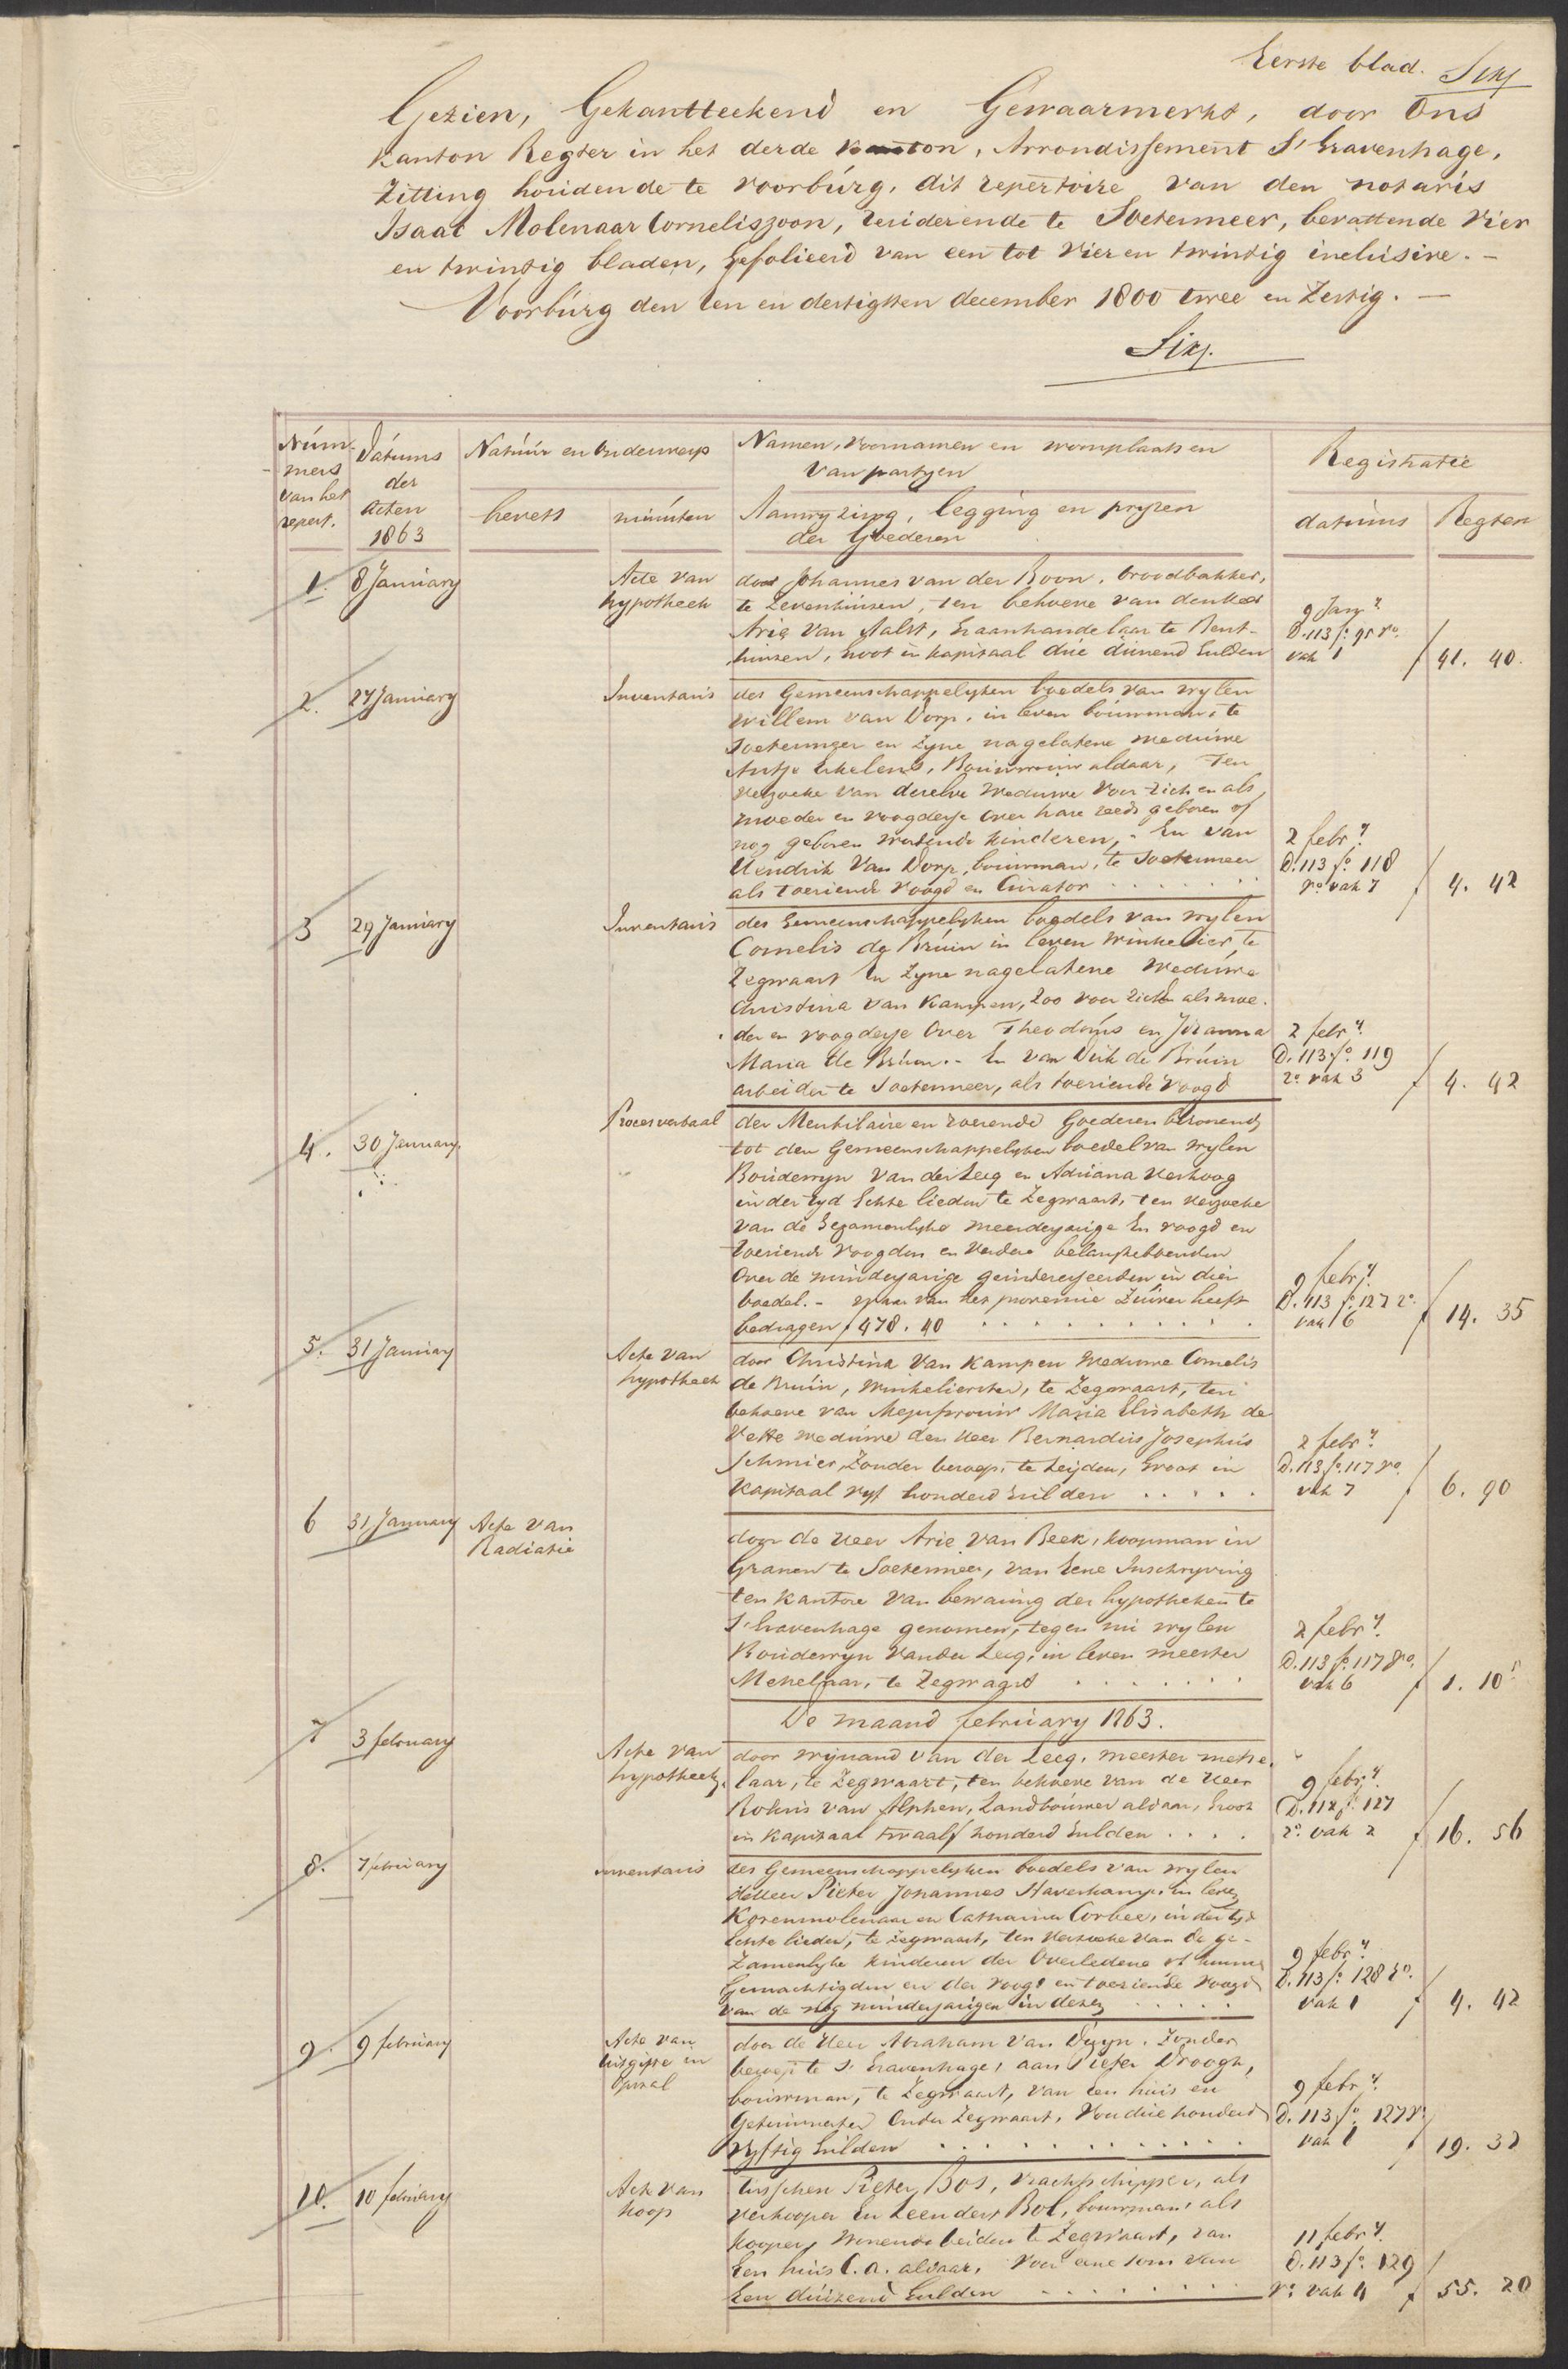 Eerste blad. Six
Gezien, Gekantteekend en Gewaarmerkt, door Ons
Kanton Regter in het derde kanton, Arrondissement S'Gravenhage,
Zitting houdende te Voorburg, dit repertoire van den notaris
Isaac Molenaar Corneliszoon, residerende te Soetermeer, bevattende Vier
en twintig bladen, gefolieerd van een tot Vier en twintig inclusive. -
Voorburg den een en dertigsten december 1800 twee en Zestig. -
Six.
Num-
mers
van het
repert.
Datums
der
Acten
1863
Natuur en Onderwerp
brevets
minuten
Namen, Voornamen en woonplaatsen
Van partyen
Aanwyzing, legging en pryzen
der Goederen
Registratie
datums
Regten
1. 8 January
Acte van
hypotheek
door Johannes van der Boon, broodbakker,
te Zevenhuisen, ten behoeve van den Heer
Arie Van Aalst, Graanhandelaar te Bent-
huisen, Groot in kapitaal drie duisend Gulden
9 Jany
D. 113 fo. 95 ro.
vak 1
f 41. 40.
2. 27 January
Inventaris
des Gemeenschappelyken boedels van wylen
Willem van Dorp, in leven bouwman, te
Soetermeer en Zyne nagelatene weduwe
Antje Ekelens, Bouwvrouw aldaar, Ten
Verzoeke van derzelve Weduwe Voor zich en als
moeder en voogdesse over hare reeds geboren of
nog geboren wordende kinderen, - En van
Hendrik Van Dorp, bouwman, te Soetermeer
als toeziende Voogd en Curator . . . . . . .
2 febry
D. 113 fo. 118
ro vak 7
f 4. 42
3 29 January
Inventaris
des Gemeenschappelyken boedels van wylen
Cornelis de Bruin in leven Winkelier, te
Zegwaart En Zyne nagelatene Weduwe
Christina Van Kampen, Zoo voor zich als moe-
der en voogdesse Over Theodorus en Johanna
Maria de Bruin. - En van Dirk de Bruin
arbeider te Soetermeer, als toeziende Voogd
2 febry
D. 113 fo. 119
ro. vak 3
f 4. 42
4. 30 January
Procesverbaal
der Meubilaire en roerende Goederen behorende
tot den Gemeenschappelyken boedel van wylen
Boudewyn Van der Leeg en Adriana Verhoog
in der tyd Echte lieden te Zegwaart, ten verzoeke
Van de Gezamenlyke meerderjarige En voogd en
toeziende Voogden en verdere belanghebbenden
Over de minderjarige geinteresseerden in dien
boedel. -
bedragen f 478. 40 . . . . . . . . . .
9 febry
D. 113 fo. 127 ro.
vak 6
f 14. 35
5. 31 January
Acte van
hypotheek
door Christina Van Kampen Weduwe Cornelis
de Bruin, Winkelierster, te Zegwaart, ten
behoeve van Mejufvrouw Maria Elisabeth de
Vette weduwe den Heer Bernardus Josephus
Schmier, Zonder beroep, te Leijden, Groot in
Kapitaal vyf honderd Gulden . . . . .
2 febry
D. 113 fo. 117 vo.
vak 7
f 6. 90
6 31 January
Acte van
Radiatie
door de Heer Arie Van Beek, koopman in
Granen te Soetermeer, van Eene Inschryving
ten kantore van bewaring der hypotheken te
S'Gravenhage genomen, tegen nu wylen
Boudewyn Van der Leeg, in leven meester
Metselaar, te Zegwaart . . . . . . .
2 febry
D. 113 fo. 117 vo.
vak 6
f 1. 10
De maand february 1863.
7 3 february
Acte van
hypotheek
door Wijnand van der Leeg, meester metse-
laar, te Zegwaart, ten behoeve van de Heer
Rokus van Alphen, Landbouwer aldaar, Groot
in kapitaal twaalf honderd Gulden . . . .
9 febry
D. 112 fo. 127
ro. vak 2
f 16. 56
8. 7 february
inventaris
des Gemeenschappelyken boedels van wylen
de Heer Pieter Johannes Haverkamp in leven
Korenmolenaar en Catharina Corbee, in der tyd
Echte lieden, te Zegwaart, ten Verzoeke Van de ge-
Zamenlyke kinderen der Overledene of hunne
Gemachtigden en der voogd en toeziende Voogd
van de nog minderjarigen in dezen . . . . .
9 febry
D. 113 fo. 128 ro.
vak 1
f 4. 42
9. 9 february
Acte van
uitgifte in
Opstal
door de Heer Abraham Van Duyn, Zonder
beroep te S'Gravenhage, aan Pieter Droogh,
bouwman, te Zegwaart, van Een huis en
Getimmerte Onder Zegwaart, Voor drie honderd
Vyftig Gulden . . . . . . . . . . .
9 febry
D. 113 fo. 127 vo
vak 1
f 19. 32
10. 10 february
Acte van
koop
tusschen Pieter Bos, Vrachtschipper, als
Verkooper En Leendert Bol, bouwman, als
kooper, wonende beiden te Zegwaart, van
Een huis C. a. aldaar, Voor eene som van
Een duizend Gulden . . . . . . . .
11 febry
D. 113 fo. 129
ro. vak 4
f 55. 20